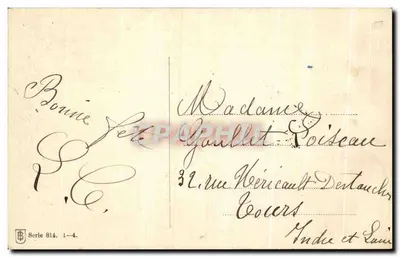 Bonne fête
L. C.
Madame
Goullet-Loiseau
32, rue Néricault Destouches
Tours
Indre et Loire
Serie 814. 1-4.